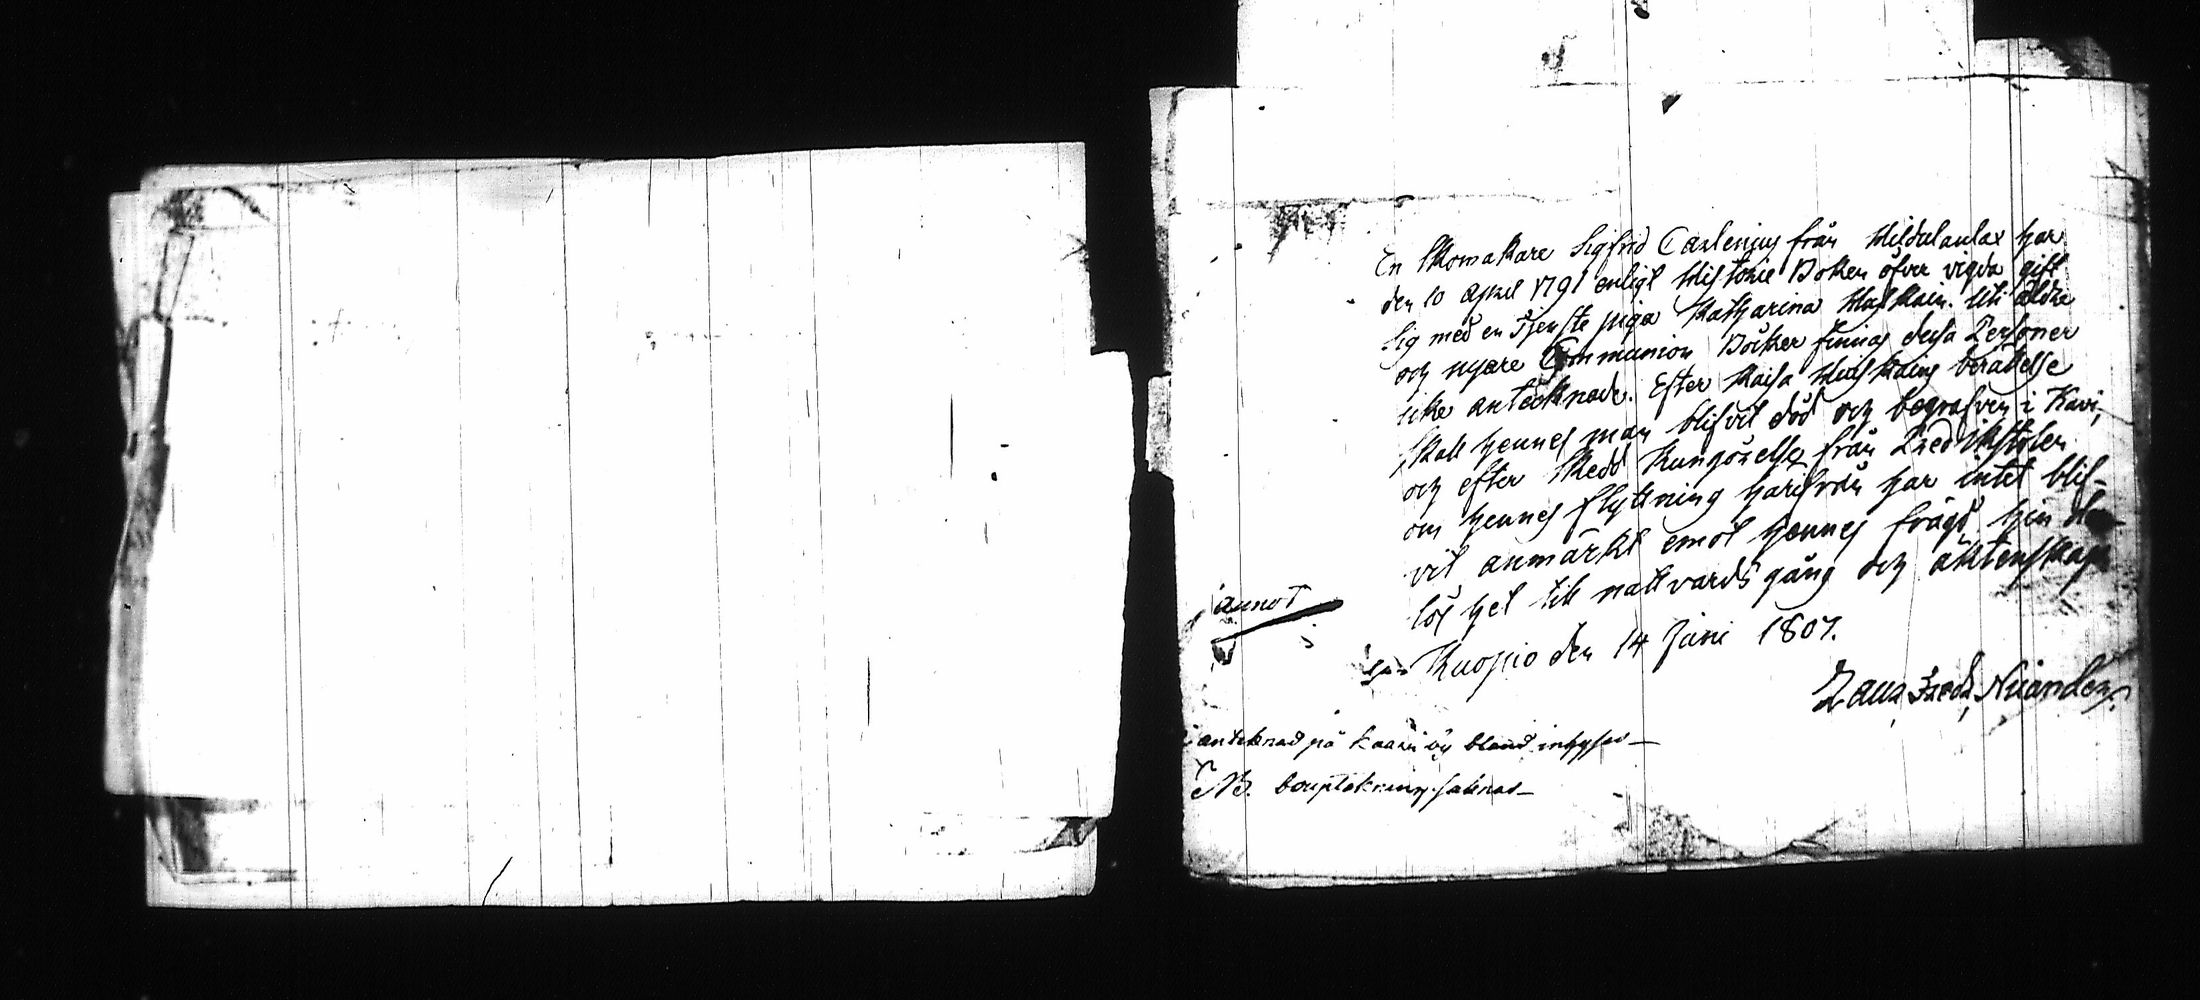 En Skomakare Sigfrid Carlenius från Hildulanlax har
den 10 April 1791 enligt Historie Boken öfver vigda gift
sig med en Tjenste piga Katharina Haskain. Uti äldre
och nyare Communion Böcker finnas dessa Personer
icke antecknade. Efter Kaisa berättelse
skall hennes man blifvit död och begrafven i Kavi,
och efter skedd Kungörelse från Predikstolen
om hennes flyttning härifrån har intet blif-
vit anmärkt emot hennes frägd, hin der
lös hel till nattvards gång och äktenskap
Kuopio den 14 Juni 1807.
Laur. Fredr. Niander.
annot
anteknad på Kaavi by bland inhyses
NB. bouptekning saknas